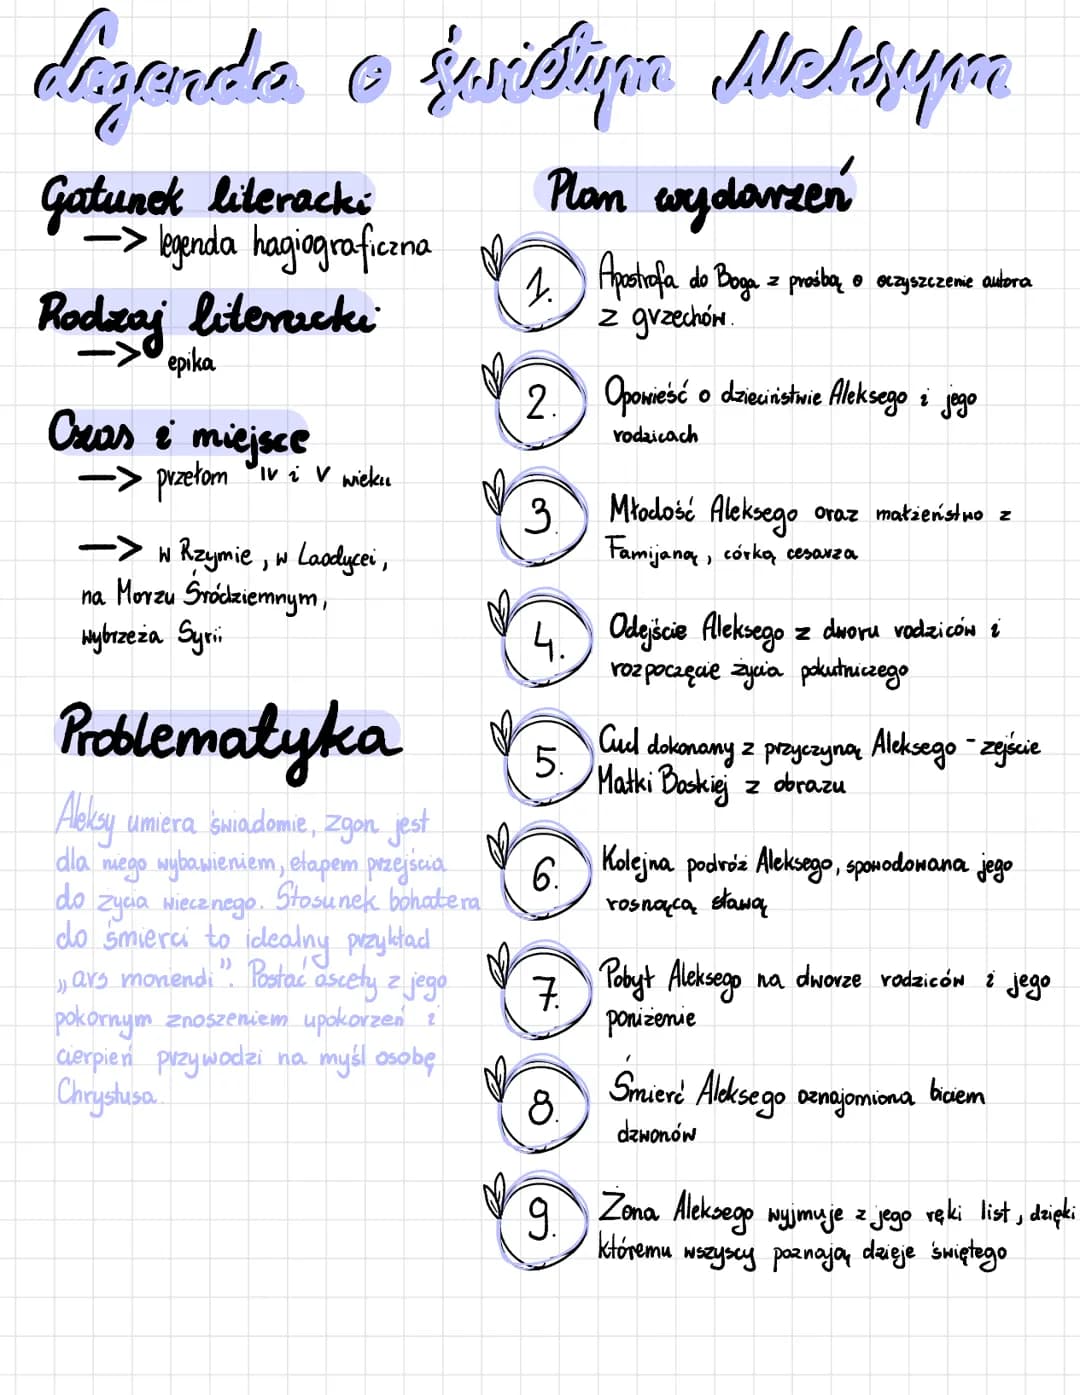 Legenda o świętym Aleksym
Gatunek literacki
—> legenda hagiograficzna
Rodzaj literacki
—> epika
Czas i miejsce
—> przełom IV i V wieku
—> w Rzymie, w Laodycei,
na Morzu Śródziemnym,
wybrzeża Syrii
Problematyka
Aleksy umiera świadomie, zgon jest
dla niego wybawieniem, etapem przejścia
do życia wiecznego. Stosunek bohatera
do śmierci to idealny przykład
„ars monendi”. Postać ascety z jego
pokornym znoszeniem upokorzeń i
cierpień przywodzi na myśl osobę
Chrystusa.
Plan wydarzeń
1. Apostrofa do Boga z prośbą o oczyszczenie autora
z grzechów.
2. Opowieść o dzieciństwie Aleksego i jego
rodzicach
3. Młodość Aleksego oraz małżeństwo z
Famijaną, córką cesarza
4. Odejście Aleksego z dworu rodziców i
rozpoczęcie życia pokutniczego
5. Cud dokonany z przyczyną Aleksego - zejście
Matki Boskiej z obrazu
6. Kolejna podróż Aleksego, spowodowana jego
rosnącą sławą
7. Pobyt Aleksego na dworze rodziców i jego
poniżenie
8. Śmierć Aleksego oznajomiona biciem
dzwonów
9. Żona Aleksego wyjmuje z jego ręki list, dzięki
któremu wszyscy poznają dzieje świętego